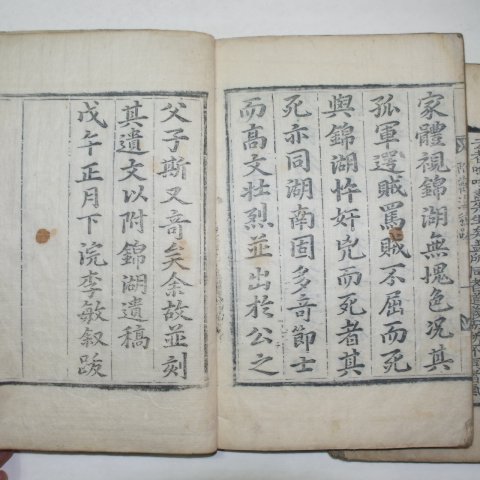 家體視錦湖無塊色況其
孤軍遌賊罵賊不屈而死
與錦湖忤奸兇而死者其
死亦同湖南固多奇節士
而高文壯烈並出於公之
父子斯又奇矣余故並刻
其遺文以附錦湖遺稿
戊午正月下浣李敏叙跋